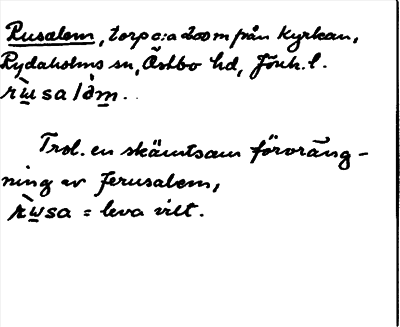 Rusalem, torp c:a 200 m från kyrkan,
Rydaholms sn, Östbo hd, Jönk. l.
rùsalàm.
Trol. en skämtsam förvräng-
ning av Jerusalem,
rùsa = leva vilt.